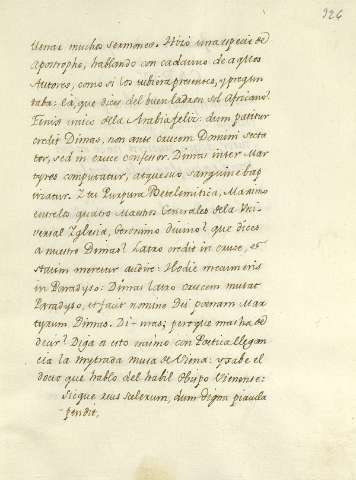 324
llenar muchos sermones. Hizo una especie de
Apostrophe, hablando con cada uno de aq.llos
Autores, como si los tubiera presentes, y pregun
taba: tà, que dices del buen ladron sol Africano?
Fenix unico de la Arabia feliz: dum patitur
credit Dimas, non ante crucem Domini secta
tor, sed in cruce confesor. Dimas inter Mar
tyres computatur, atque suo sanguine bap
tizatur. Y tu Purpura Betelemitica, Maximo
entre los quatro Maestros Generales de la Uni
versal Yglesia, Geronimo divino? que dices
a nuestro Dimas? Latro credit in cruce, et
statim meretur audire: Hodie mecum eris
in Paradyso: Dimas latro crucem mutat
Paradyso, et facit nomine Dei poenam Mar
tyrium Dimas. Di-mas; pero que mas ha de
decir? Diga esto mismo con Poetica elegan
cia la mytrada musa de Viena: y sabe el
docto que hablo del habil Obispo Vienense:
Sicque reus scelerum, dum digna piacula
pendit,